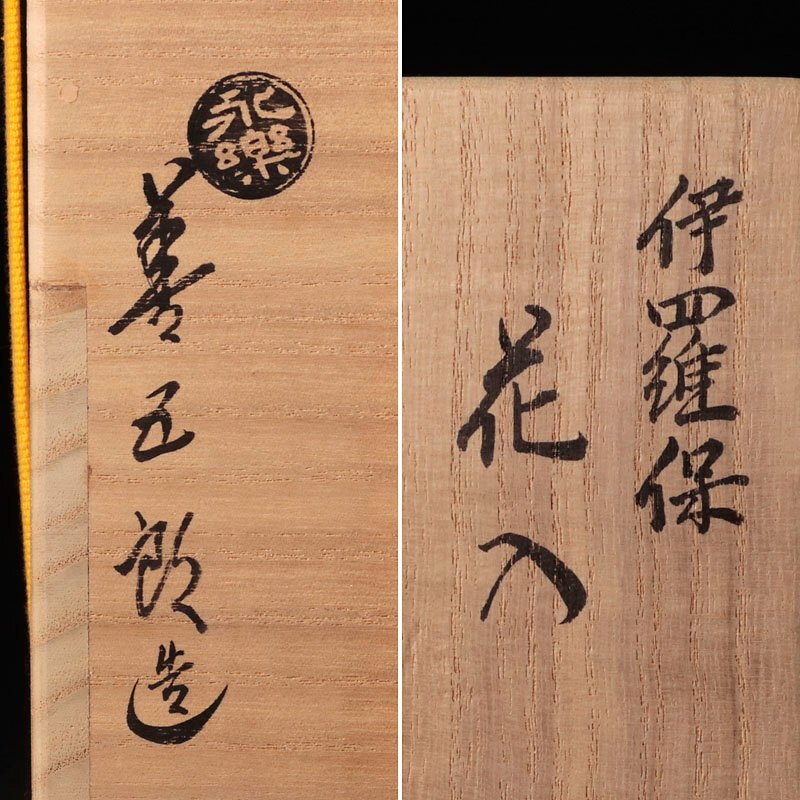 永樂
善五郎造
伊羅保
花入